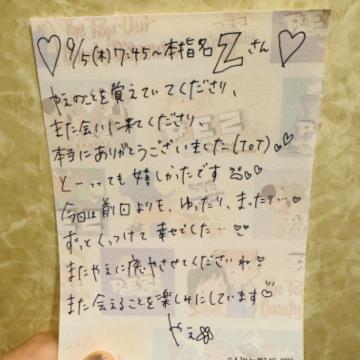 ♡ 9/5(木) 7:45〜 本指名 Zさん ♡
やえのことを覚えていてくださり、
また会いに来てくださり、
本当にありがとうございました(T.T)♡♡
とーっても嬉しかったです
今回は前回よりも、ゆったり、まったり…♡
ずっとくっつけて幸せでした…
またやえに癒やさせてくださいね♡
また会えることを楽しみにしています♡
やえ